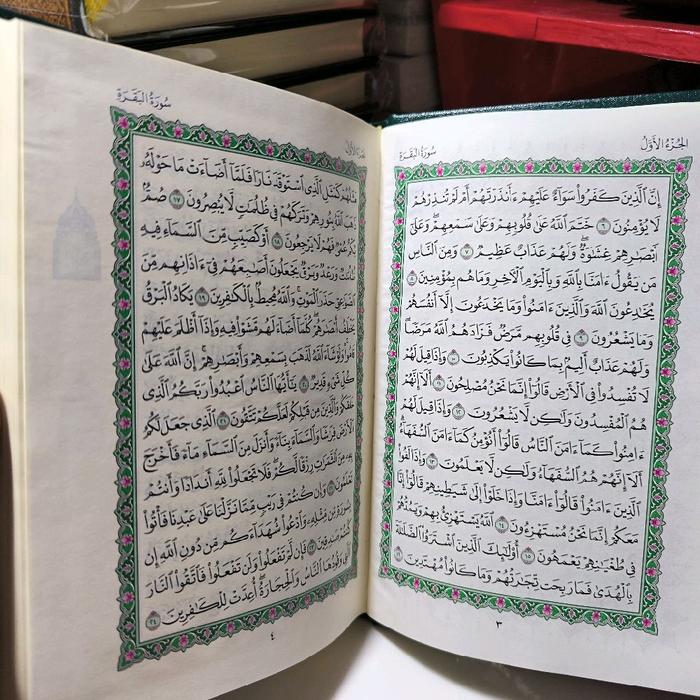 الجُزْءُ الأَوَّلُ
سُورَةُ البَقَرَةِ
إِنَّ الَّذِينَ كَفَرُوا سَوَاءٌ عَلَيْهِمْ ءَأَنذَرْتَهُمْ أَمْ لَمْ تُنذِرْهُمْ
لَا يُؤْمِنُونَ ٦ خَتَمَ اللَّهُ عَلَىٰ قُلُوبِهِمْ وَعَلَىٰ سَمْعِهِمْ ۖ وَعَلَىٰ
أَبْصَارِهِمْ غِشَاوَةٌ ۖ وَلَهُمْ عَذَابٌ عَظِيمٌ ٧ وَمِنَ النَّاسِ
مَن يَقُولُ ءَامَنَّا بِاللَّهِ وَبِالْيَوْمِ الْآخِرِ وَمَا هُم بِمُؤْمِنِينَ ٨
يُخَادِعُونَ اللَّهَ وَالَّذِينَ ءَامَنُوا وَمَا يَخْدَعُونَ إِلَّا أَنفُسَهُمْ
وَمَا يَشْعُرُونَ ٩ فِي قُلُوبِهِم مَّرَضٌ فَزَادَهُمُ اللَّهُ مَرَضًا ۖ
وَلَهُمْ عَذَابٌ أَلِيمٌ بِمَا كَانُوا يَكْذِبُونَ ١٠ وَإِذَا قِيلَ لَهُمْ
لَا تُفْسِدُوا فِي الْأَرْضِ قَالُوا إِنَّمَا نَحْنُ مُصْلِحُونَ ١١ أَلَا إِنَّهُمْ
هُمُ الْمُفْسِدُونَ وَلَٰكِن لَّا يَشْعُرُونَ ١٢ وَإِذَا قِيلَ لَهُمْ
ءَامِنُوا كَمَا ءَامَنَ النَّاسُ قَالُوا أَنُؤْمِنُ كَمَا ءَامَنَ السُّفَهَاءُ ۗ
أَلَا إِنَّهُمْ هُمُ السُّفَهَاءُ وَلَٰكِن لَّا يَعْلَمُونَ ١٣ وَإِذَا لَقُوا
الَّذِينَ ءَامَنُوا قَالُوا ءَامَنَّا وَإِذَا خَلَوْا إِلَىٰ شَيَاطِينِهِمْ قَالُوا إِنَّا
مَعَكُمْ إِنَّمَا نَحْنُ مُسْتَهْزِءُونَ ١٤ اللَّهُ يَسْتَهْزِئُ بِهِمْ وَيَمُدُّهُمْ
فِي طُغْيَانِهِمْ يَعْمَهُونَ ١٥ أُولَٰئِكَ الَّذِينَ اشْتَرَوُا الضَّلَالَةَ
بِالْهُدَىٰ فَمَا رَبِحَت تِّجَارَتُهُمْ وَمَا كَانُوا مُهْتَدِينَ ١٦
٣
سُورَةُ البَقَرَةِ
مَثَلُهُمْ كَمَثَلِ الَّذِي اسْتَوْقَدَ نَارًا فَلَمَّا أَضَاءَتْ مَا حَوْلَهُ
ذَهَبَ اللَّهُ بِنُورِهِمْ وَتَرَكَهُمْ فِي ظُلُمَاتٍ لَّا يُبْصِرُونَ ١٧ صُمٌّ
بُكْمٌ عُمْيٌ فَهُمْ لَا يَرْجِعُونَ ١٨ أَوْ كَصَيِّبٍ مِّنَ السَّمَاءِ فِيهِ
ظُلُمَاتٌ وَرَعْدٌ وَبَرْقٌ يَجْعَلُونَ أَصَابِعَهُمْ فِي ءَاذَانِهِم مِّنَ
الصَّوَاعِقِ حَذَرَ الْمَوْتِ ۚ وَاللَّهُ مُحِيطٌ بِالْكَافِرِينَ ١٩ يَكَادُ الْبَرْقُ
يَخْطَفُ أَبْصَارَهُمْ ۖ كُلَّمَا أَضَاءَ لَهُم مَّشَوْا فِيهِ وَإِذَا أَظْلَمَ عَلَيْهِمْ
قَامُوا ۚ وَلَوْ شَاءَ اللَّهُ لَذَهَبَ بِسَمْعِهِمْ وَأَبْصَارِهِمْ ۚ إِنَّ اللَّهَ عَلَىٰ
كُلِّ شَيْءٍ قَدِيرٌ ٢٠ يَا أَيُّهَا النَّاسُ اعْبُدُوا رَبَّكُمُ الَّذِي
خَلَقَكُمْ وَالَّذِينَ مِن قَبْلِكُمْ لَعَلَّكُمْ تَتَّقُونَ ٢١ الَّذِي جَعَلَ لَكُمُ
الْأَرْضَ فِرَاشًا وَالسَّمَاءَ بِنَاءً وَأَنزَلَ مِنَ السَّمَاءِ مَاءً فَأَخْرَجَ
بِهِ مِنَ الثَّمَرَاتِ رِزْقًا لَّكُمْ ۖ فَلَا تَجْعَلُوا لِلَّهِ أَندَادًا وَأَنتُمْ
تَعْلَمُونَ ٢٢ وَإِن كُنتُمْ فِي رَيْبٍ مِّمَّا نَزَّلْنَا عَلَىٰ عَبْدِنَا فَأْتُوا
بِسُورَةٍ مِّن مِّثْلِهِ وَادْعُوا شُهَدَاءَكُم مِّن دُونِ اللَّهِ إِن
كُنتُمْ صَادِقِينَ ٢٣ فَإِن لَّمْ تَفْعَلُوا وَلَن تَفْعَلُوا فَاتَّقُوا النَّارَ
الَّتِي وَقُودُهَا النَّاسُ وَالْحِجَارَةُ ۖ أُعِدَّتْ لِلْكَافِرِينَ ٢٤
٤